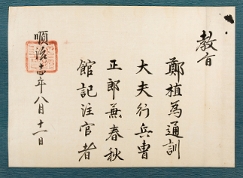 教旨
鄭植爲通訓
大夫行兵曹
正郎兼春秋
館記注官者
順治十四年八月十二日